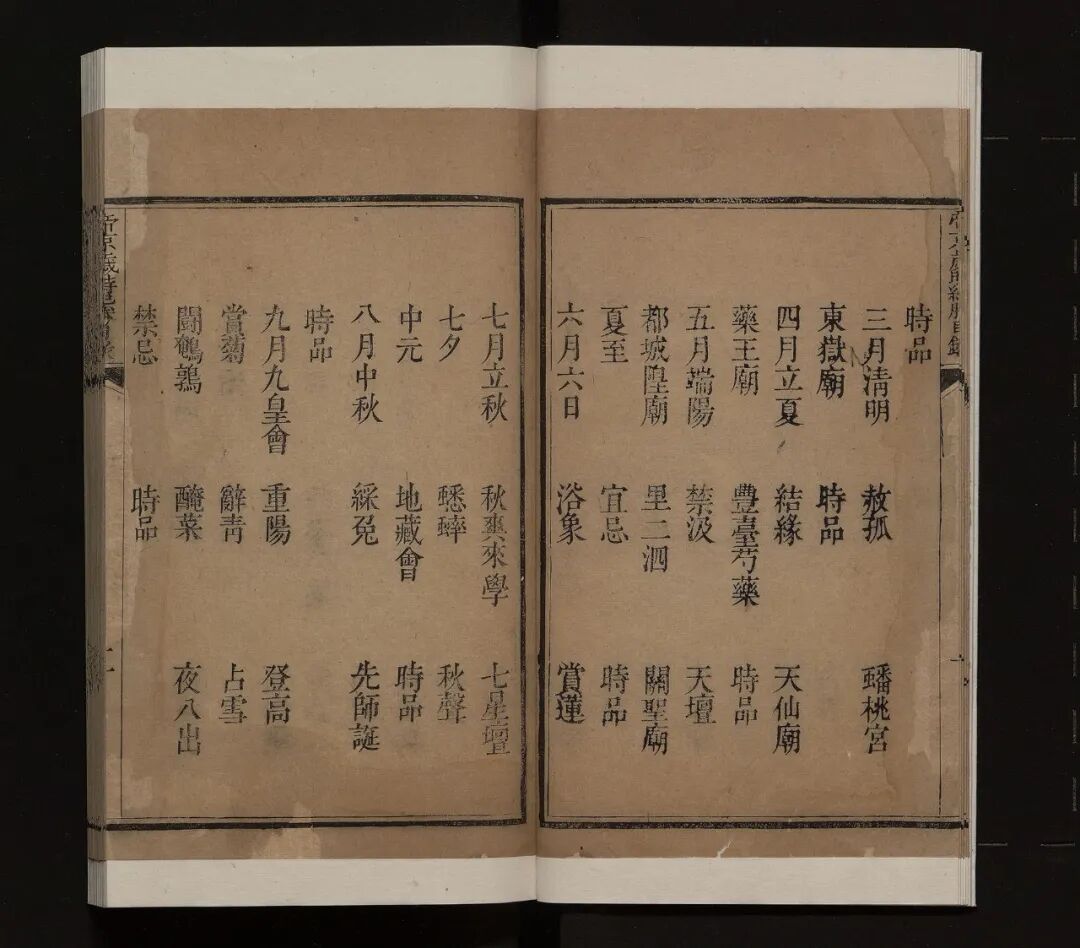 時品
三月清明 赦孤 蟠桃宮
東嶽廟 時品
四月立夏 結緣 天仙廟
藥王廟 豐臺芍藥 時品
五月端陽 禁汲 天壇
都城隍廟 里二泗 關聖廟
夏至 宜忌 時品
六月六日 浴象 賞蓮
七月立秋 秋爽來學 七星壇
七夕 蟋蟀 秋聲
中元 地藏會 時品
八月中秋 綵兔 先師誕
時品
九月九皇會 重陽 登高
賞菊 辭青 占雪
鬭鵪鶉 醃菜 夜八出
禁忌 時品